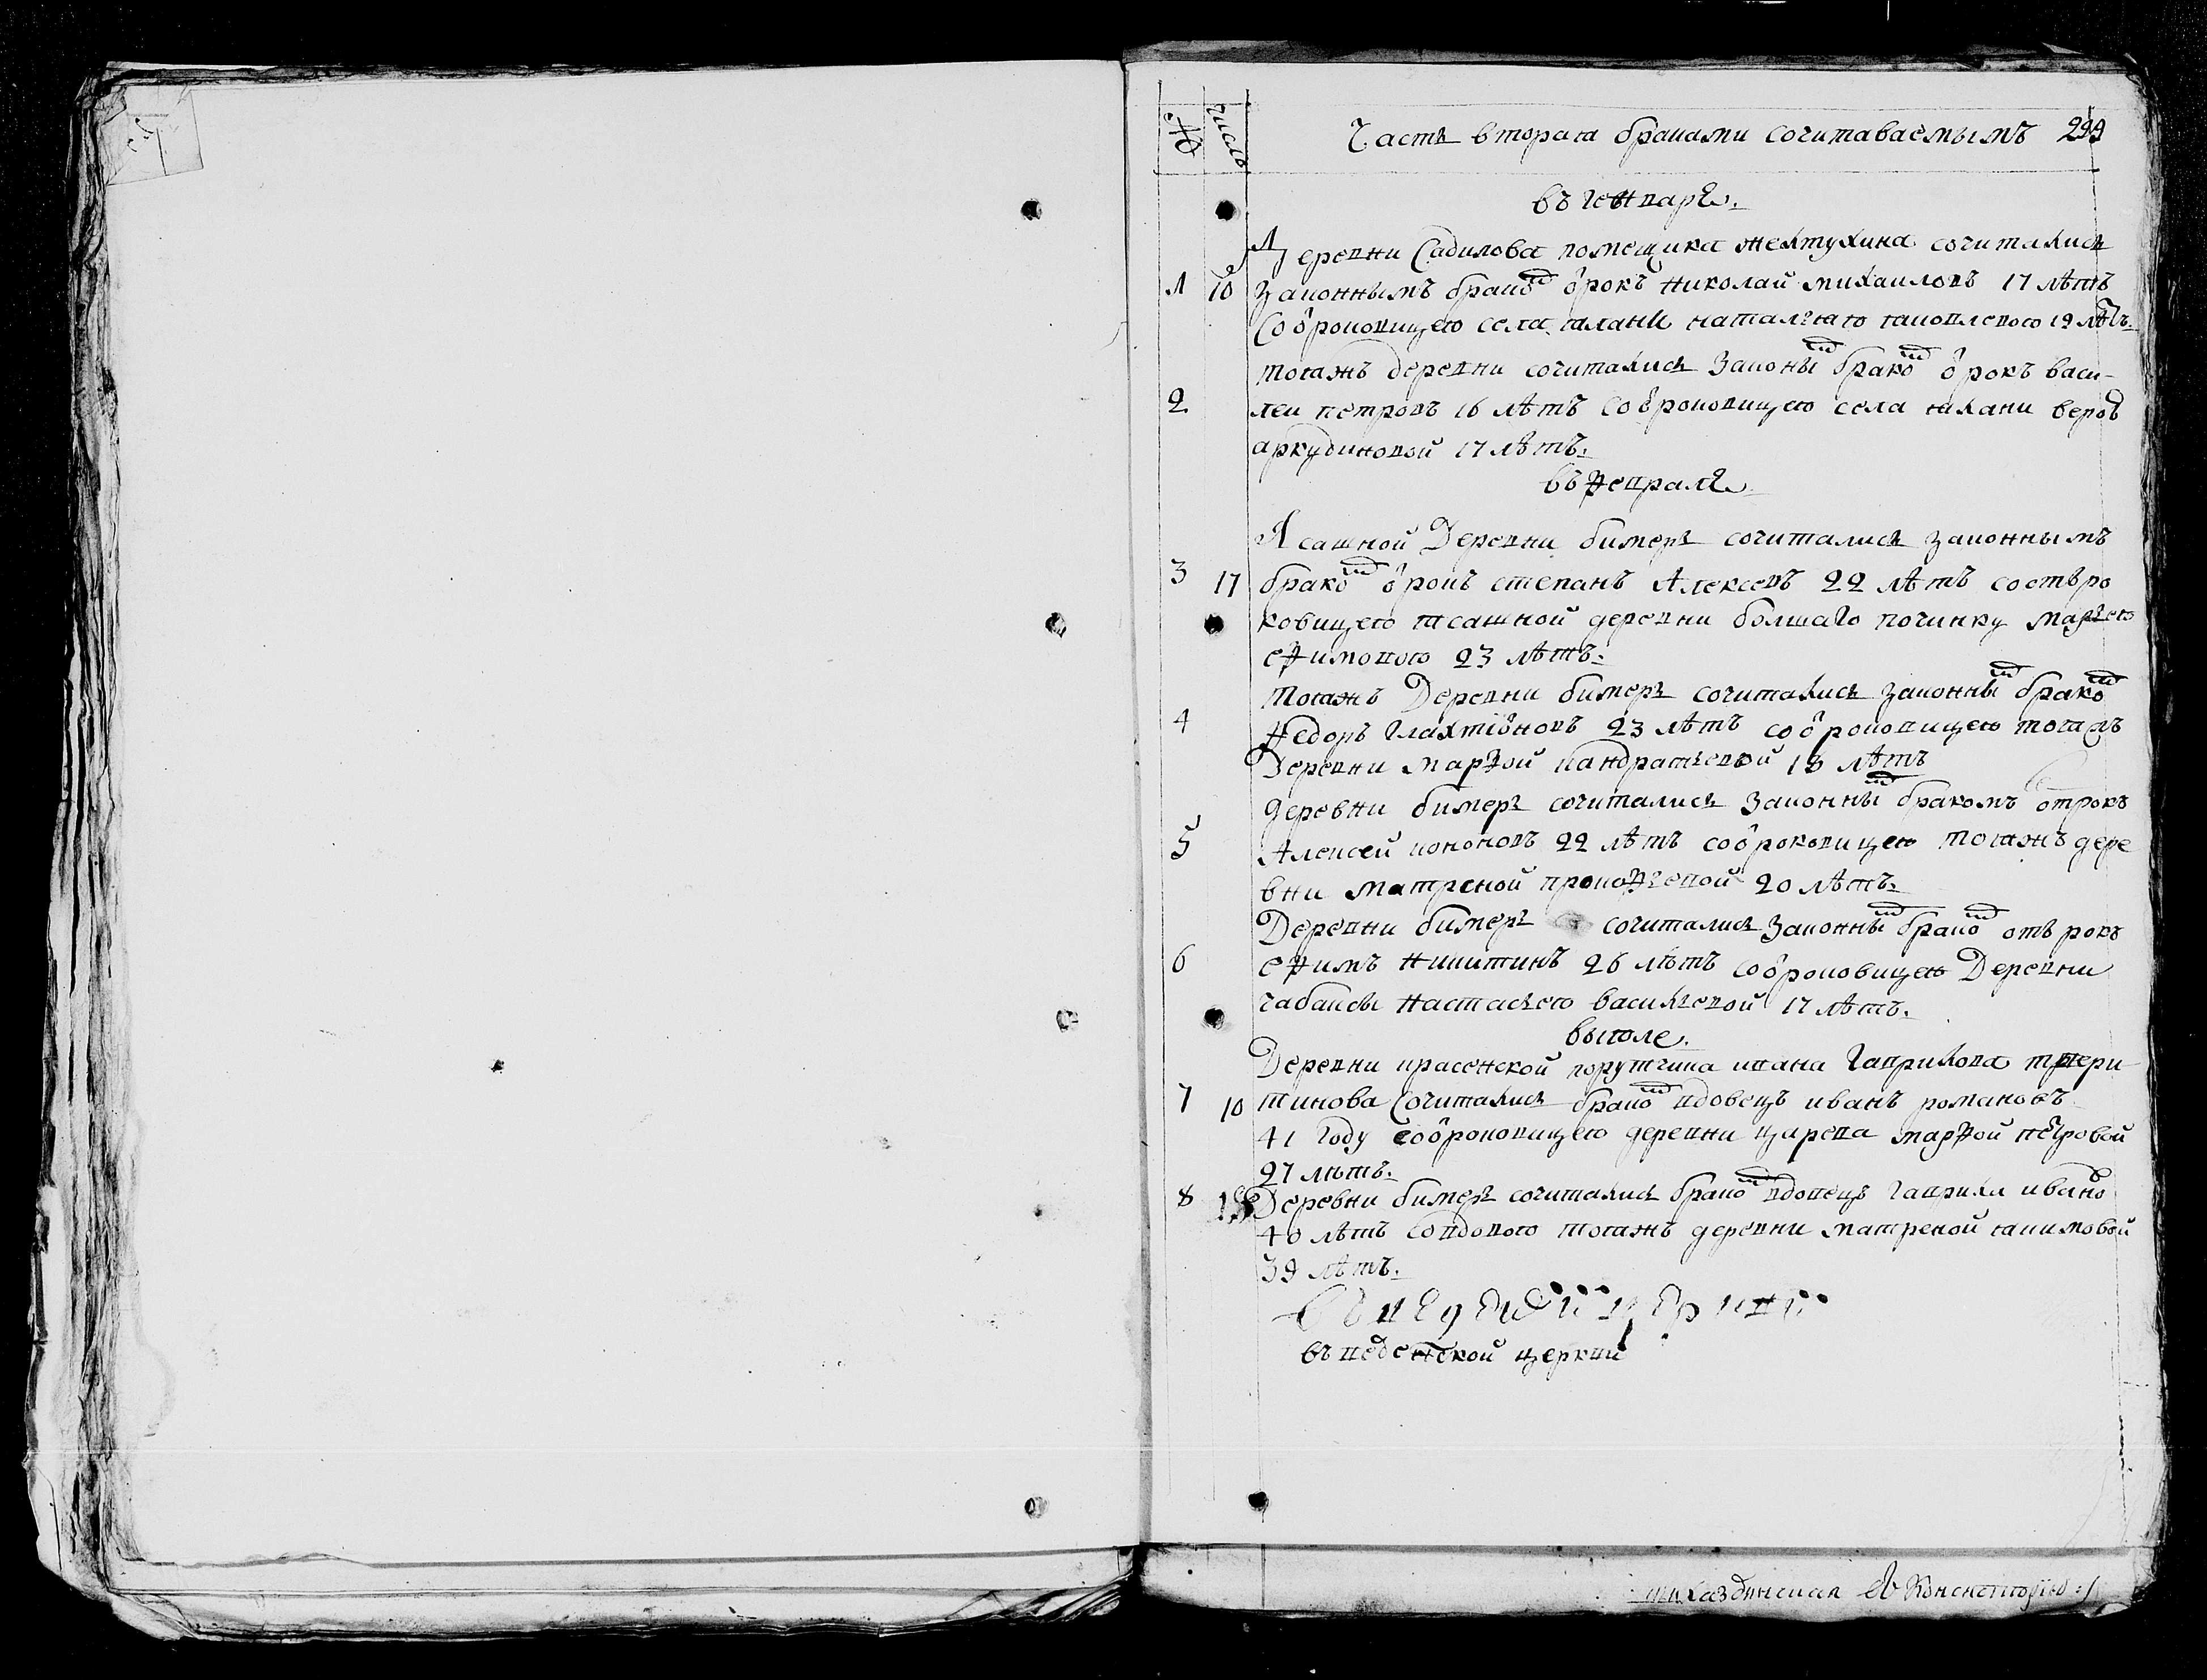 № число Часть вторая браками сочитаваемымъ 299
въ генваре.
Деревни Садилова помещика желтухина сочиталися
1 10 законнымъ бракомъ отрокъ николай михаиловъ 17 лѣтъ
Со отроковицею села яланги наталъею яковлевою 19 лѣтъ.
тояжъ деревни сочиталися Законнымъ бракомъ отрокъ васи-
2 леи петровъ 16 лѣтъ со отроковицею села яланги верой
аркудиновой 17 лѣтъ.
въ февралѣ
Ясашной Деревни бимерь сочиталися законнымъ
3 17 бракомъ отрокъ степанъ Алексевъ 22 лѣтъ со отъро
ковицею ясашной деревни болшаго починку маръею
ефимовою 23 лѣтъ.
Тояжъ Деревни бимерь сочиталися законнымъ бракомъ
4 федоръ галахтионовъ 23 лѣтъ со отроковицею тояжъ
Деревни марфой кандратьевой 18 лѣтъ
деревни бимерь сочиталися законнымъ бракомъ отрокъ
5 Алексей кононовъ 22 лѣтъ со отроковицею тояжъ дере
вни матреной прокофьевой 20 лѣтъ.
Деревни бимерь сочиталися Законнымъ бракомъ отърокъ
6 ефимъ никитинъ 26 лѣтъ со отроковицею Деревни
чабаксы настасьею васильевой 17 лѣтъ.
выюле.
Деревни красенской порутчика ивана гаврилова твери
7 10 тинова Сочиталися бракомъ вдовецъ иванъ романовъ
41 году со отроковицею деревни царева марфой петровой
27 лѣтъ.
8 Деревни бимерь сочиталися бракомъ вдовецъ гаврила ивановъ
40 лѣтъ со вдовою тояжъ деревни матреной якимовой
39 лѣтъ.
въведенской церкви
Консисторїю :/